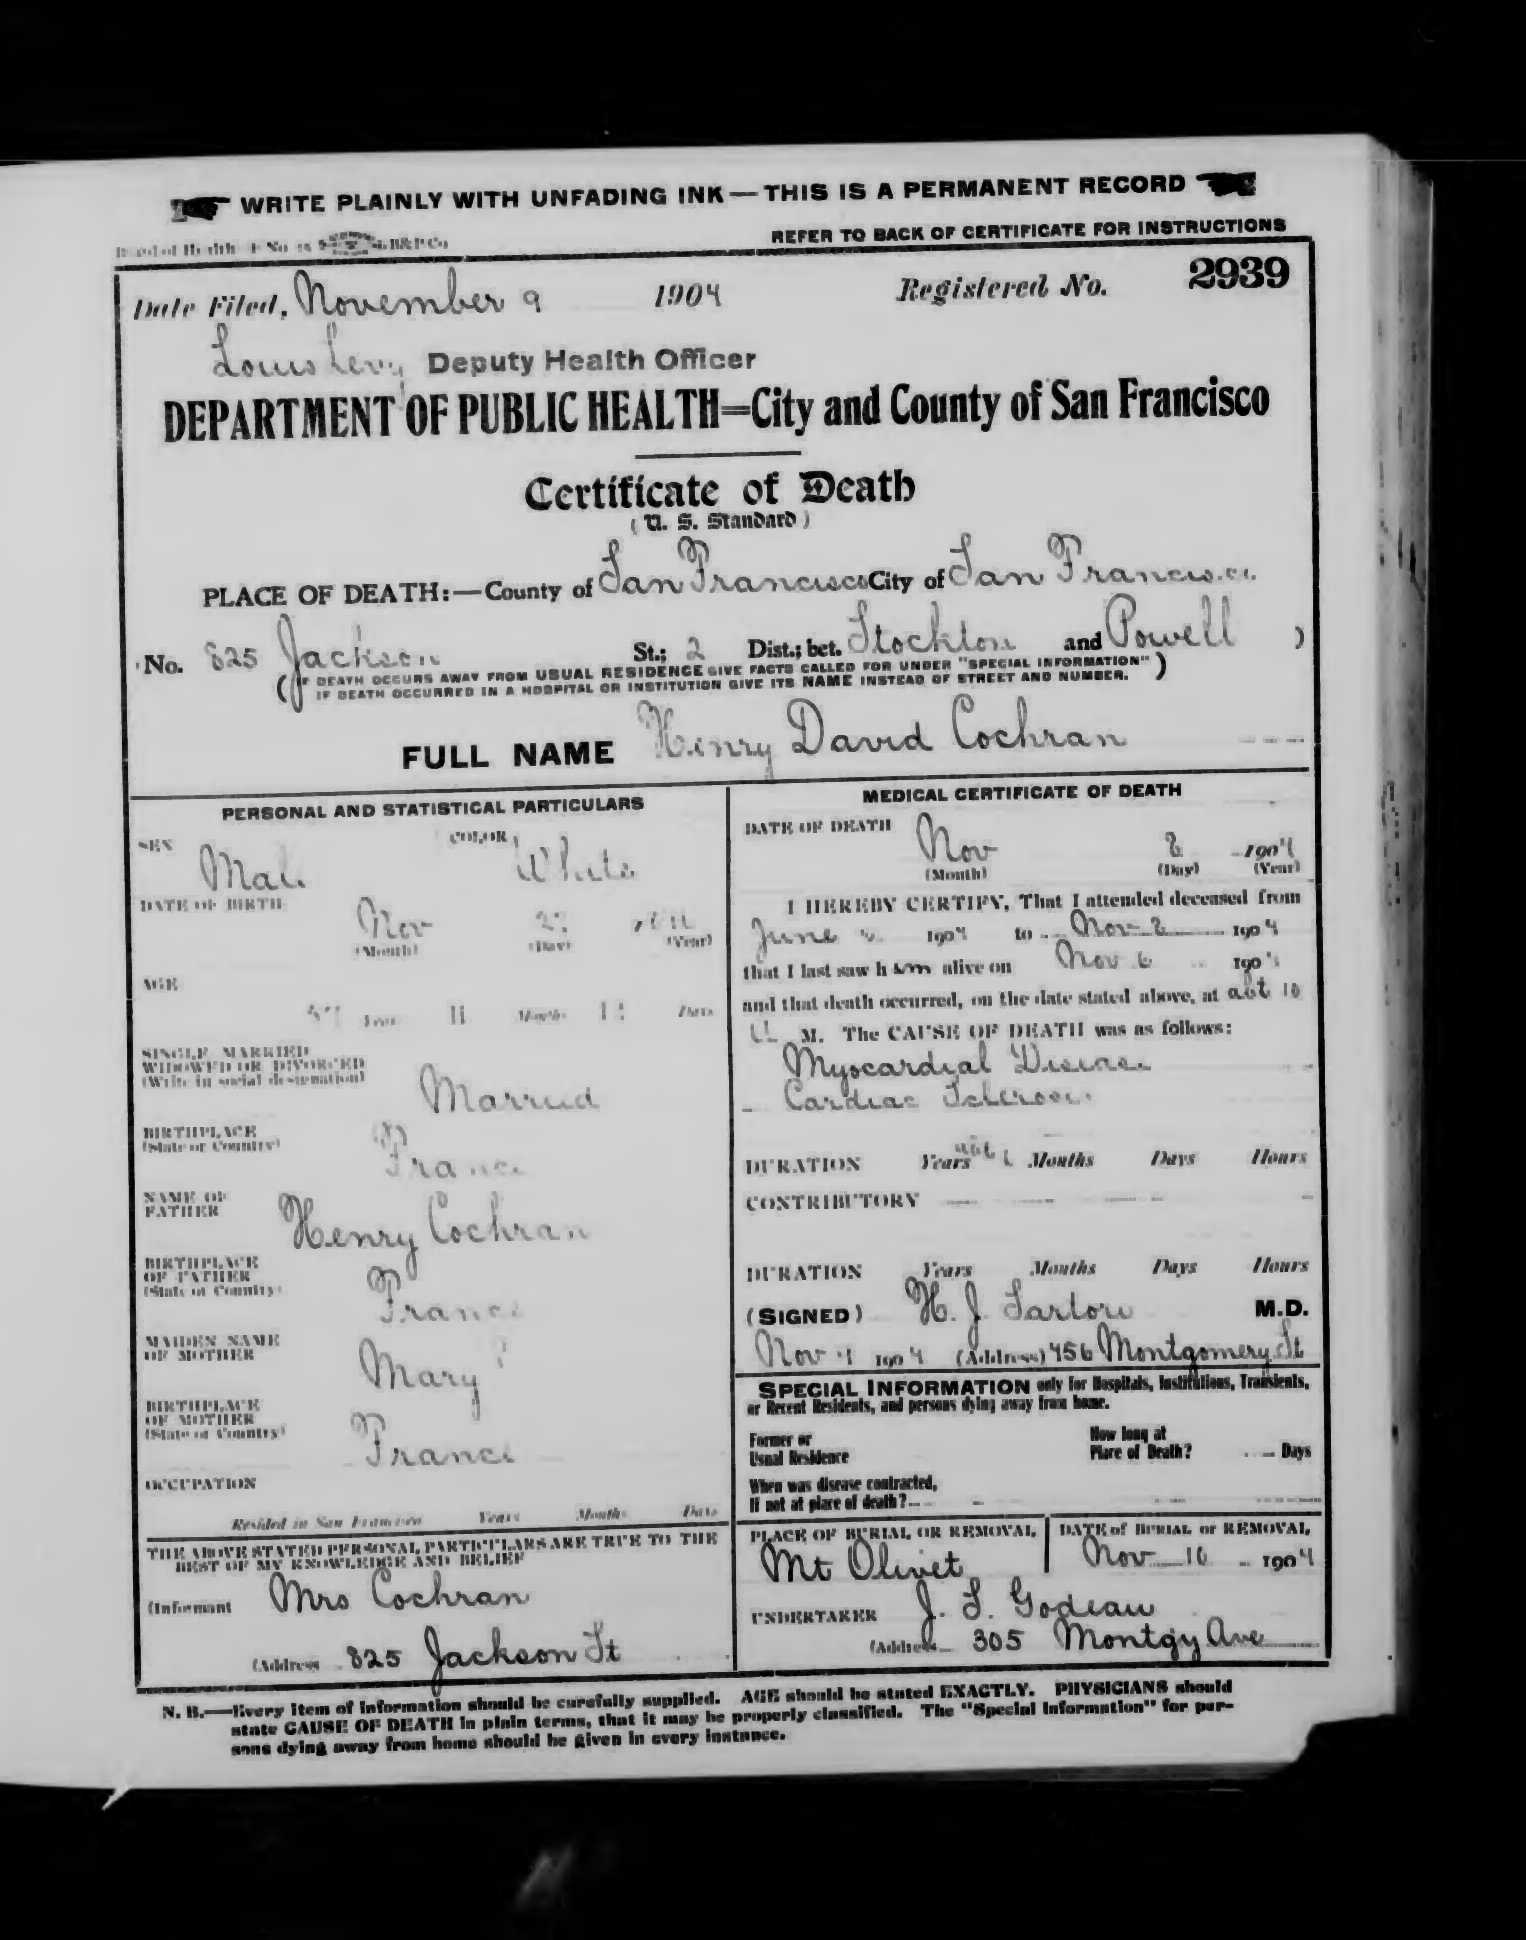 WRITE PLAINLY WITH UNFADING INK — THIS IS A PERMANENT RECORD
REFER TO BACK OF CERTIFICATE FOR INSTRUCTIONS
Date Filed, November 9 1904 Registered No. 2939
Louis Levy Deputy Health Officer
DEPARTMENT OF PUBLIC HEALTH=City and County of San Francisco
Certificate of Death
(U. S. Standard)
PLACE OF DEATH:—County of San Francisco City of San Francisco
No. 825 Jackson St.; 2 Dist.; bet. Stockton and Powell )
(IF DEATH OCCURS AWAY FROM USUAL RESIDENCE GIVE FACTS CALLED FOR UNDER "SPECIAL INFORMATION"
IF DEATH OCCURRED IN A HOSPITAL OR INSTITUTION GIVE ITS NAME INSTEAD OF STREET AND NUMBER.)
FULL NAME Henry David Cochran
PERSONAL AND STATISTICAL PARTICULARS
SEX Male COLOR White
DATE OF BIRTH Nov
(Month) (Day) (Year)
AGE
Years 11 Months Days
SINGLE, MARRIED
WIDOWED OR DIVORCED
(Write in social designation)
Married
BIRTHPLACE
(State or Country)
France
NAME OF
FATHER
Henry Cochran
BIRTHPLACE
OF FATHER
(State or Country)
France
MAIDEN NAME
OF MOTHER
Mary ?
BIRTHPLACE
OF MOTHER
(State or Country)
France
OCCUPATION
Resided in San Francisco Years Months Days
THE ABOVE STATED PERSONAL PARTICULARS ARE TRUE TO THE
BEST OF MY KNOWLEDGE AND BELIEF
(Informant Mrs Cochran
(Address 825 Jackson St
MEDICAL CERTIFICATE OF DEATH
DATE OF DEATH Nov 8 1904
(Month) (Day) (Year)
I HEREBY CERTIFY, That I attended deceased from
June 1904 to Nov 8 1904
that I last saw him alive on Nov 6 1904
and that death occurred, on the date stated above, at abt 10
a M. The CAUSE OF DEATH was as follows:
Myocardial Disease
Cardiac Sclerosis
DURATION Years abt Months Days Hours
CONTRIBUTORY
DURATION Years Months Days Hours
(SIGNED) H. J. Sartori M.D.
Nov 1904 (Address) 456 Montgomery St
SPECIAL INFORMATION only for Hospitals, Institutions, Transients,
or Recent Residents, and persons dying away from home.
Former or
Usual Residence
How long at
Place of Death? Days
When was disease contracted,
If not at place of death?
PLACE OF BURIAL OR REMOVAL
Mt Olivet
DATE of BURIAL or REMOVAL
Nov 10 1904
UNDERTAKER J. S. Godeau
(Address 305 Montg'y Ave
N. B.—Every item of information should be carefully supplied. AGE should be stated EXACTLY. PHYSICIANS should
state CAUSE OF DEATH in plain terms, that it may be properly classified. The "Special Information" for per-
sons dying away from home should be given in every instance.